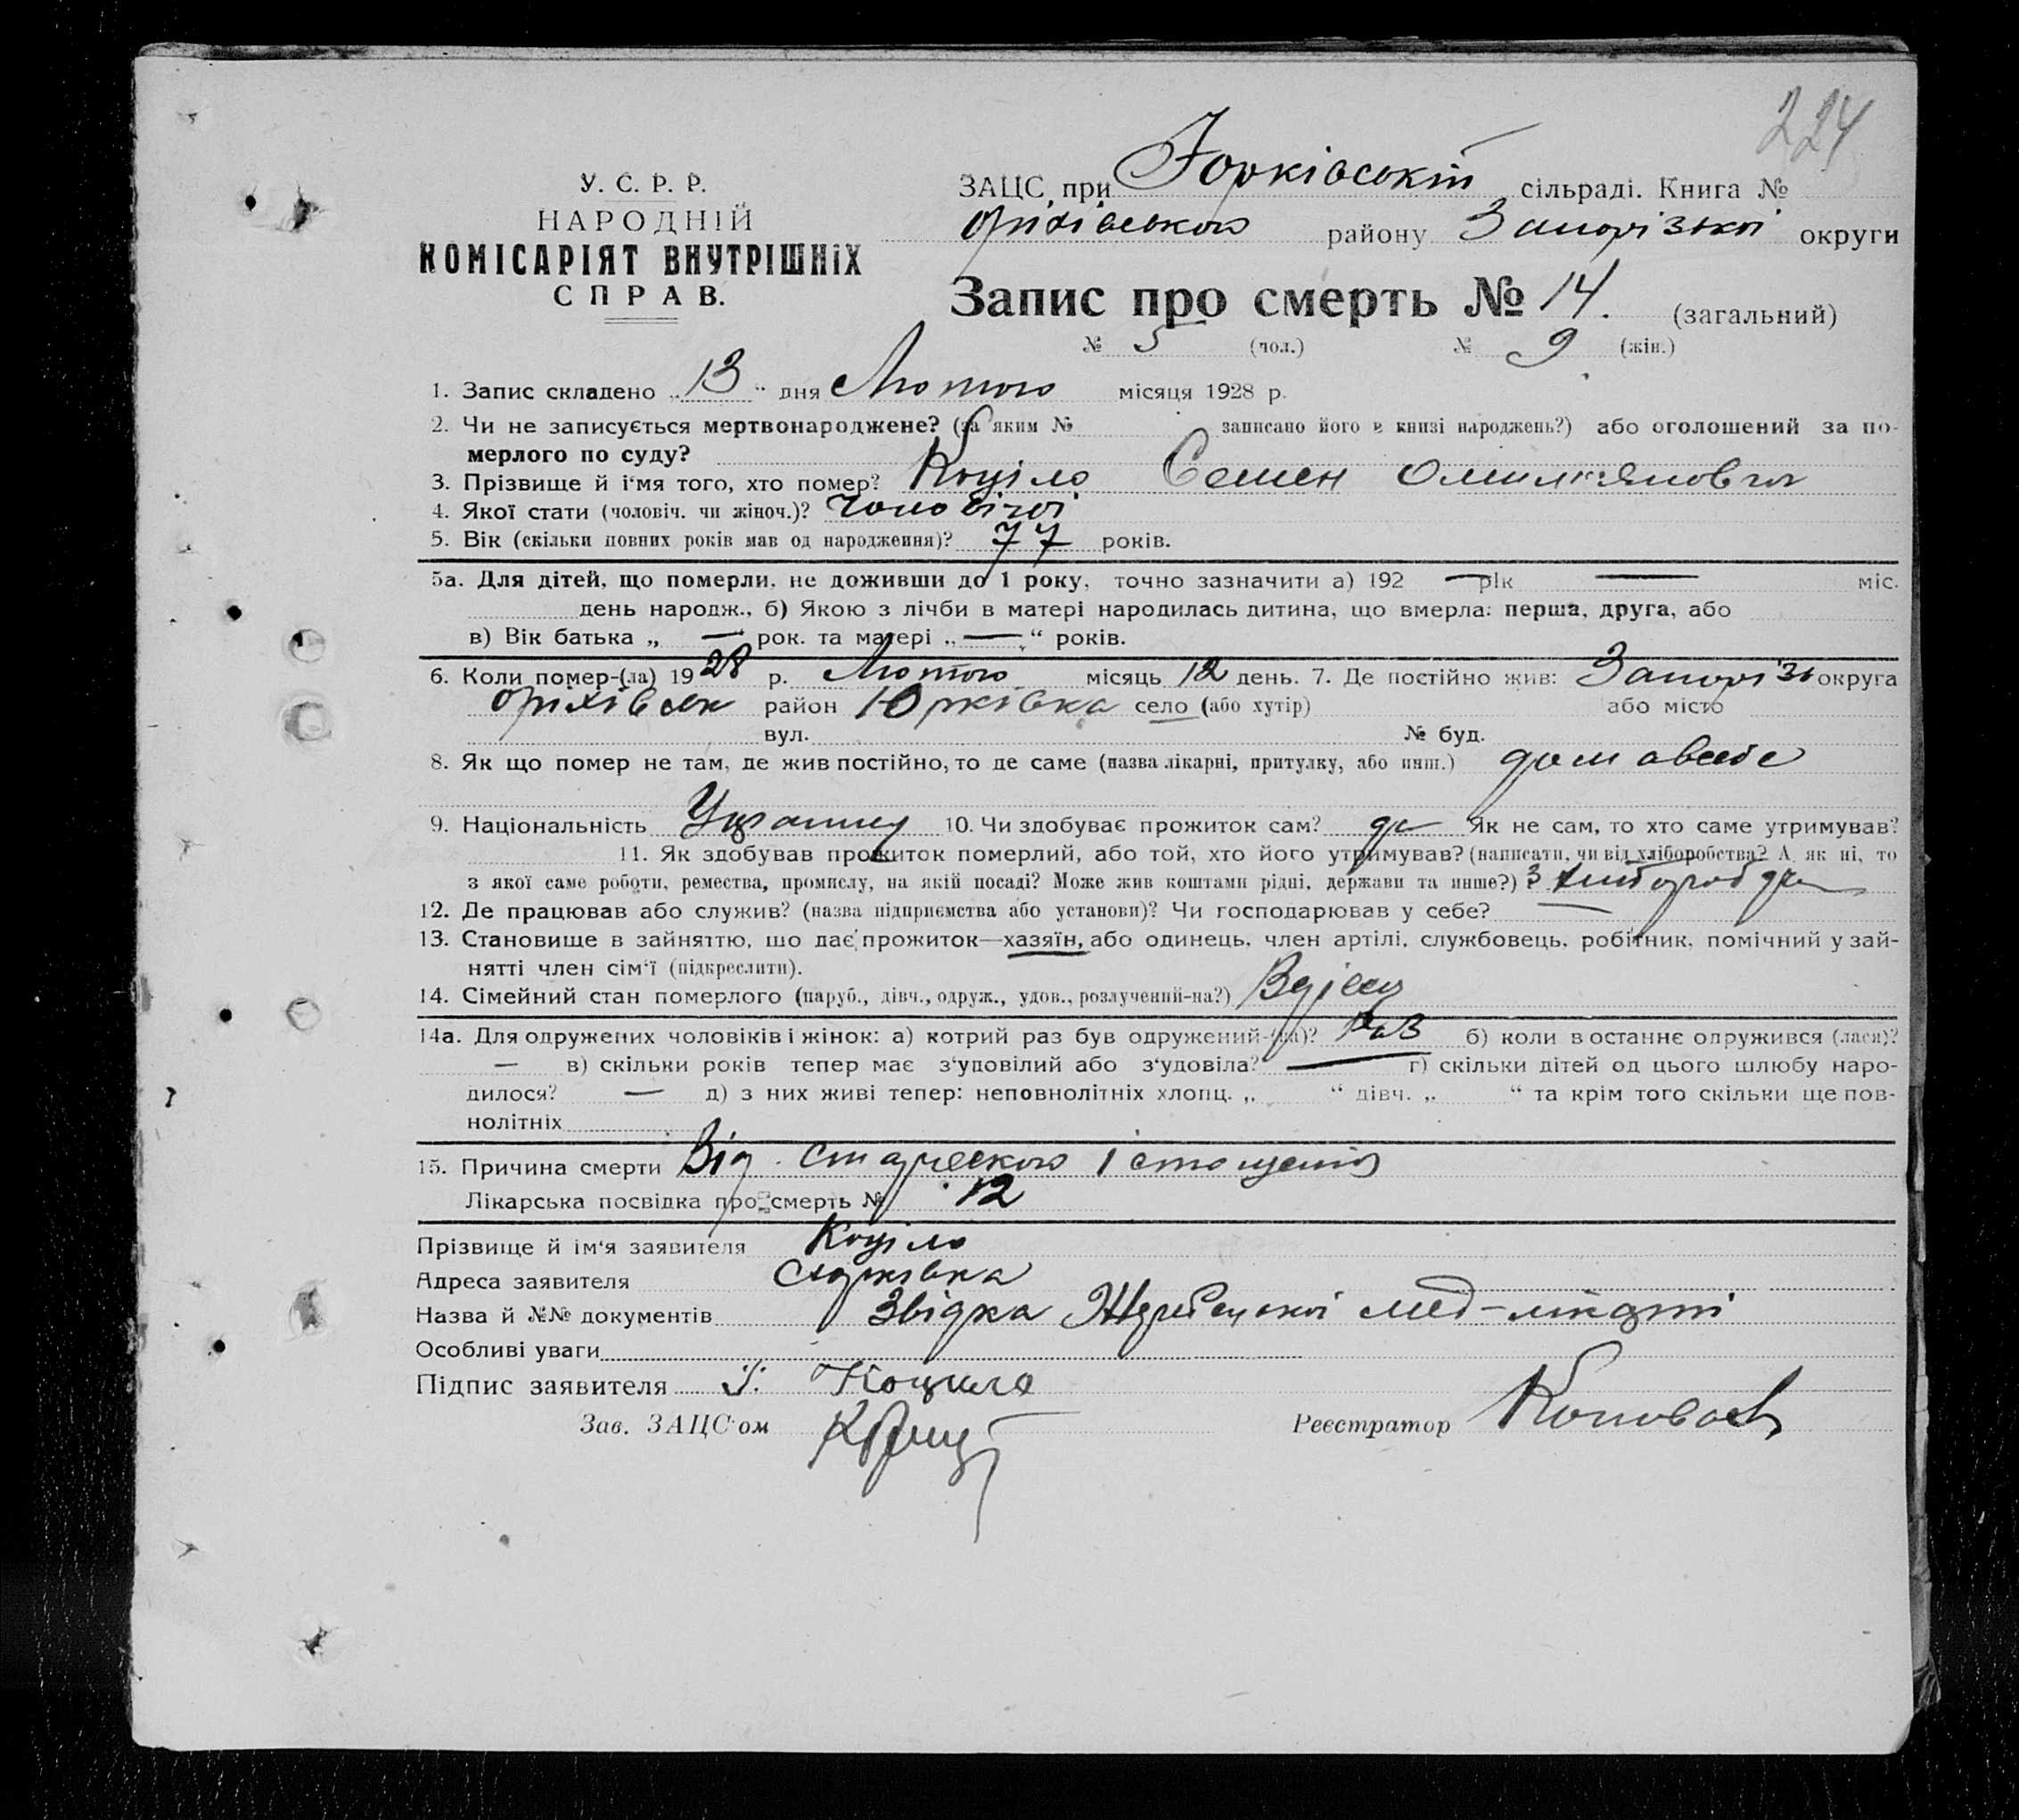 224
У. С. Р. Р.
НАРОДНІЙ
КОМІСАРІЯТ ВНУТРІШНІХ
СПРАВ.
ЗАЦС при Юрківській сільраді. Книга №
Оріхівського району Запорізької округи
Запис про смерть № 14. (загальний)
№ 5 (чол.) № 9 (жін.)
1. Запис складено „13“ дня Лютого місяця 1928 р.
2. Чи не записується мертвонароджене? (за яким № записано його в книзі народжень?) або оголошений за по-
мерлого по суду?
3. Прізвище й і'мя того, хто помер? Коціло Семен
4. Якої стати (чоловіч. чи жіноч.)? Чоловічої
5. Вік (скільки повних років мав од народження)? 77 років.
5а. Для дітей, що померли, не доживши до 1 року, точно зазначити а) 192 — рік — міс.
день народж., б) Якою з лічби в матері народилась дитина, що вмерла: перша, друга, або
в) Вік батька „ — рок. та матері „ — “ років.
6. Коли помер-(ла) 1928 р. Лютого місяць 12 день. 7. Де постійно жив: Запоріз округа
Оріхівськ район Юрківка село (або хутір) або місто
вул. № буд.
8. Як що помер не там, де жив постійно, то де саме (назва лікарні, притулку, або инш.)
9. Національність 10. Чи здобуває прожиток сам? да Як не сам, то хто саме утримував?
11. Як здобував прожиток померлий, або той, хто його утримував? (написати, чи від хліборобства? А як ні, то
з якої саме роботи, ремества, промислу, на якій посаді? Може жив коштами рідні, держави та инше?) З
12. Де працював або служив? (назва підприємства або установи)? Чи господарював у себе? —
13. Становище в зайняттю, що дає прожиток—хазяїн, або одинець, член артілі, службовець, робітник, помічний у зай-
нятті член сім'ї (підкреслити).
14. Сімейний стан померлого (паруб., дівч., одруж., удов., розлучений-на?)
14а. Для одружених чоловіків і жінок: а) котрий раз був одружений-(на)? раз б) коли в останнє одружився (лася)?
— в) скільки років тепер має з'удовілий або з'удовіла? — г) скільки дітей од цього шлюбу наро-
дилося? — д) з них живі тепер: неповнолітніх хлопц. „ “ дівч. „ “ та крім того скільки ще пов-
нолітніх
15. Причина смерти Від старческого істощения
Лікарська посвідка про смерть № 12
Прізвище й ім'я заявителя Коціло
Адреса заявителя Юрківка
Назва й №№ документів Звідка Жеребецької мед-
Особливі уваги
Підпис заявителя Коцило
Зав. ЗАЦС'ом Реєстратор